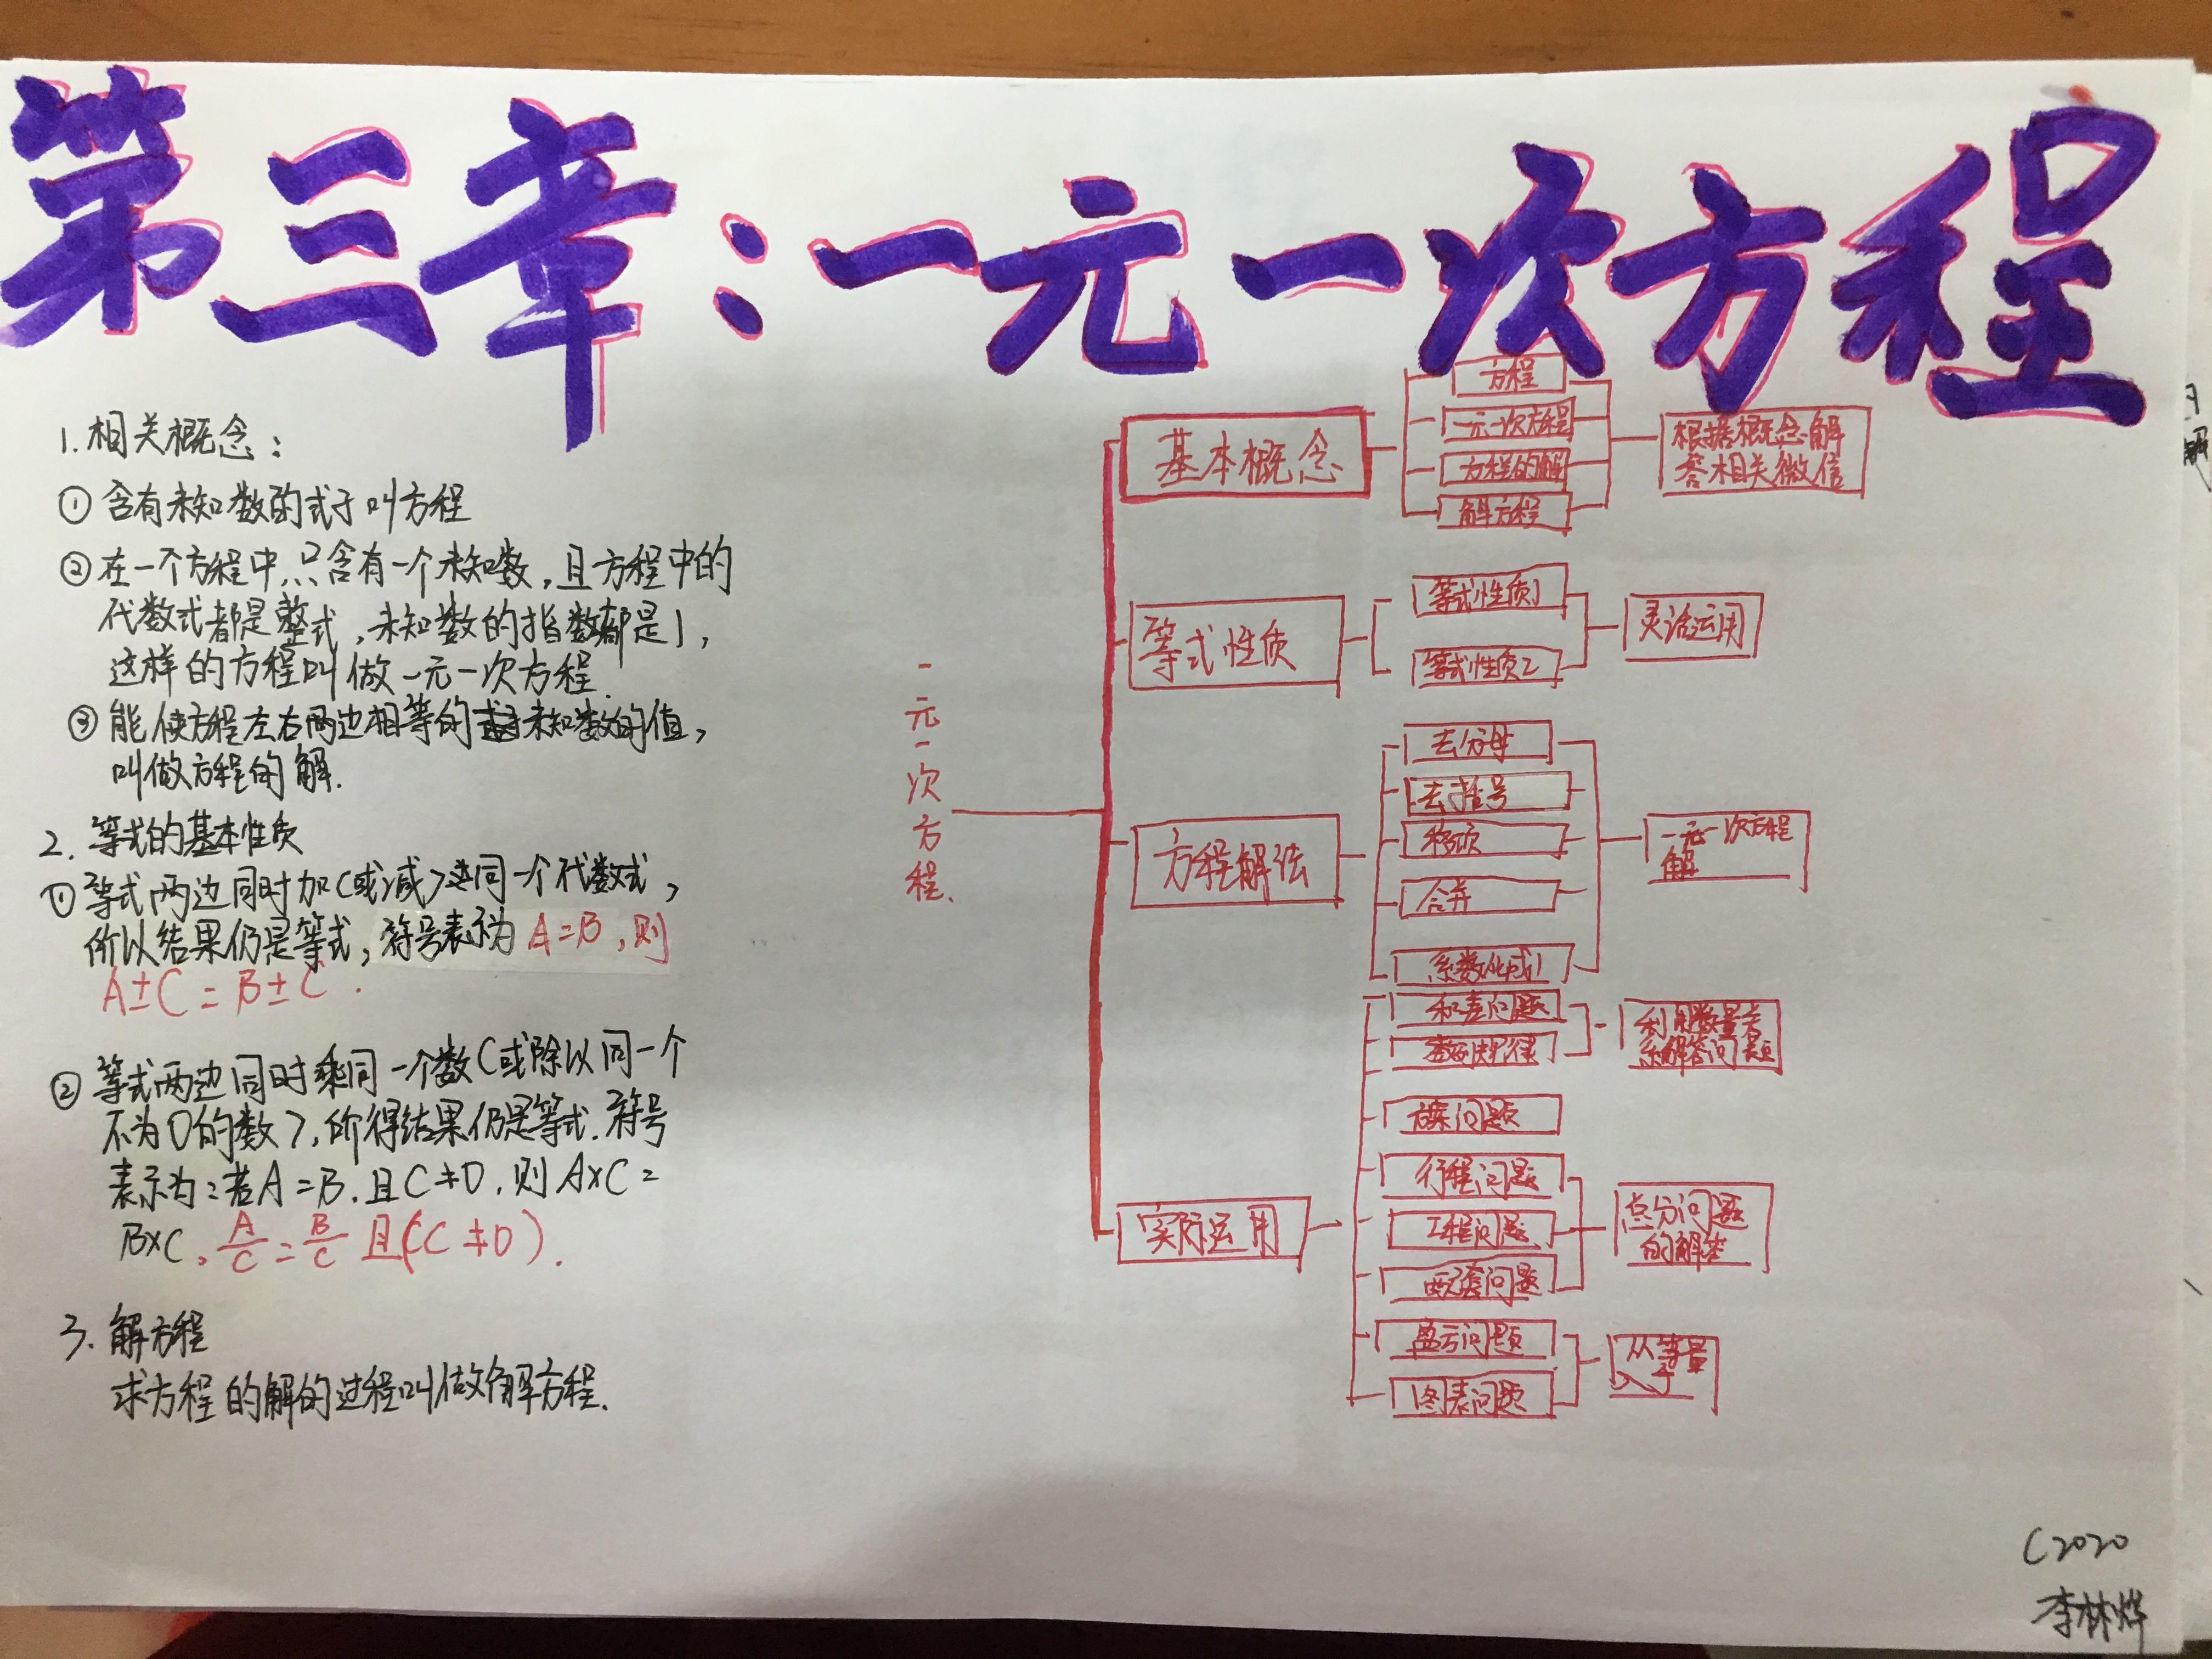 第三章:一元一次方程
1.相关概念:
①含有未知数的式子叫方程
②在一个方程中,只含有一个未知数,且方程中的
代数式都是整式,未知数的指数都是1,
这样的方程叫做一元一次方程.
③能使方程左右两边相等的未知数的值,
叫做方程的解.
2.等式的基本性质
①等式两边同时加(或减)同一个代数式,
所以结果仍是等式,符号表示为A=B,则
A±C=B±C.
②等式两边同时乘同一个数(或除以同一个
不为0的数),所得结果仍是等式.符号
表示为:若A=B.且C≠0,则A×C=
B×C,A/C=B/C且(C≠0).
3.解方程
求方程的解的过程叫做解方程.
一元一次方程.
基本概念
方程
一元一次方程
方程的解
解方程
根据概念解
答相关微信
等式性质
等式性质1
等式性质2
灵活运用
方程解法
去分母
去括号
移项
合并
系数化成1
一元一次方程
解
实际运用
和差问题
数列规律
利用数量关
系解答问题
方案问题
行程问题
工程问题
配套问题
总分问题
的解答
盈亏问题
图表问题
从等量
入手
C2020
李林烨